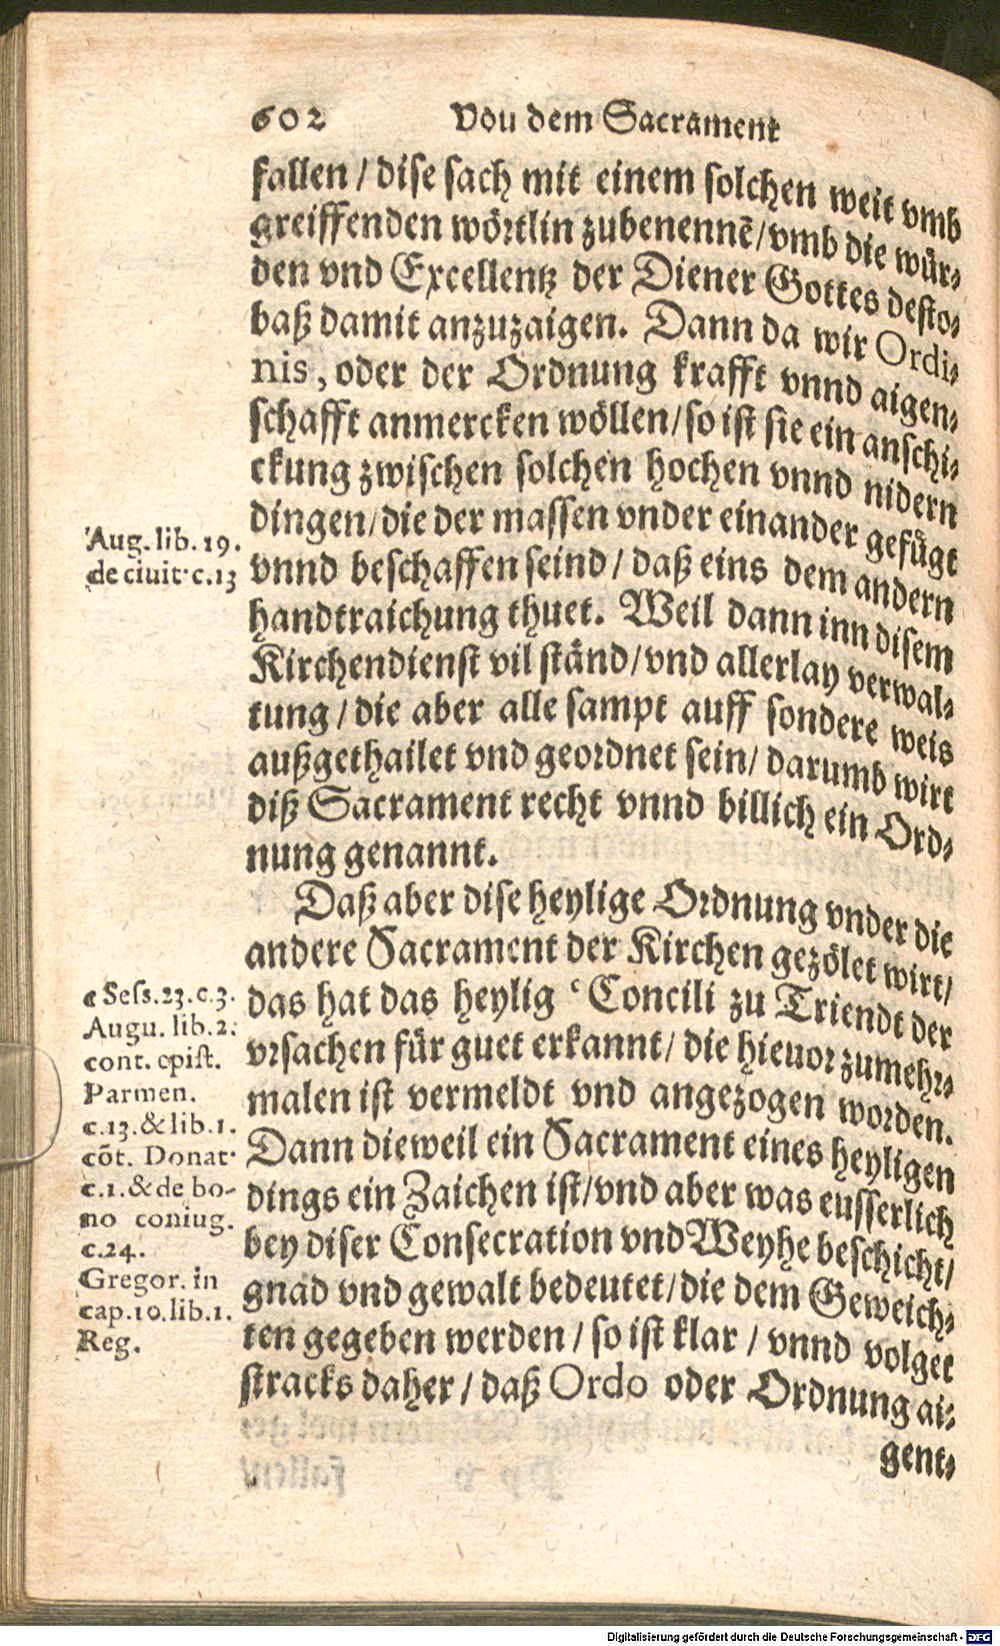 602 Vou dem Sacrament
fallen / dise sach mit einem solchen weit vmb
greiffenden wörtlin zubenennē/vmb die wür⸗
den vnd Excellentz der Diener Gottes desto⸗
baß damit anzuzaigen. Dann da wir Ordi⸗
nis, oder der Ordnung krafft vnnd aigen⸗
schafft anmercken wöllen/so ist sie ein anschi⸗
ckung zwischen solchen hochen vnnd nidern
dingen/die der massen vnder einander gefügt
vnnd beschaffen seind/ daß eins dem andern
handtraichung thuet. Weil dann inn disem
Kirchendienst vil ständ/vnd allerlay verwal⸗
tung / die aber alle sampt auff sondere weis
außgethailet vnd geordnet sein/ darumb wirt
diß Sacrament recht vnnd billich ein Ord⸗
nung genannt.
Daß aber dise heylige Ordnung vnder die
andere Sacrament der Kirchen gezölet wirt/
das hat das heylig ᶜ Concili zu Triendt der
vrsachen für guet erkannt/ die hieuor zumehr⸗
malen ist vermeldt vnd angezogen worden.
Dann dieweil ein Sacrament eines heyligen
dings ein Zaichen ist/vnd aber was eusserlich
bey diser Consecration vnd Weyhe beschicht/
gnad vnd gewalt bedeutet/die dem Geweich⸗
ten gegeben werden / so ist klar / vnnd volget
stracks daher / daß Ordo oder Ordnung ai⸗
gent⸗
Aug. lib. 19.
de ciuit. c. 13
c Sess. 23. c. 3.
Augu. lib. 2.
cont. epist.
Parmen.
c. 13. & lib. 1.
cōt. Donat.
c. 1. & de bo-
no coniug.
c. 24.
Gregor. in
cap. 10. lib. 1.
Reg.
Digitalisierung gefördert durch die Deutsche Forschungsgemeinschaft - DFG